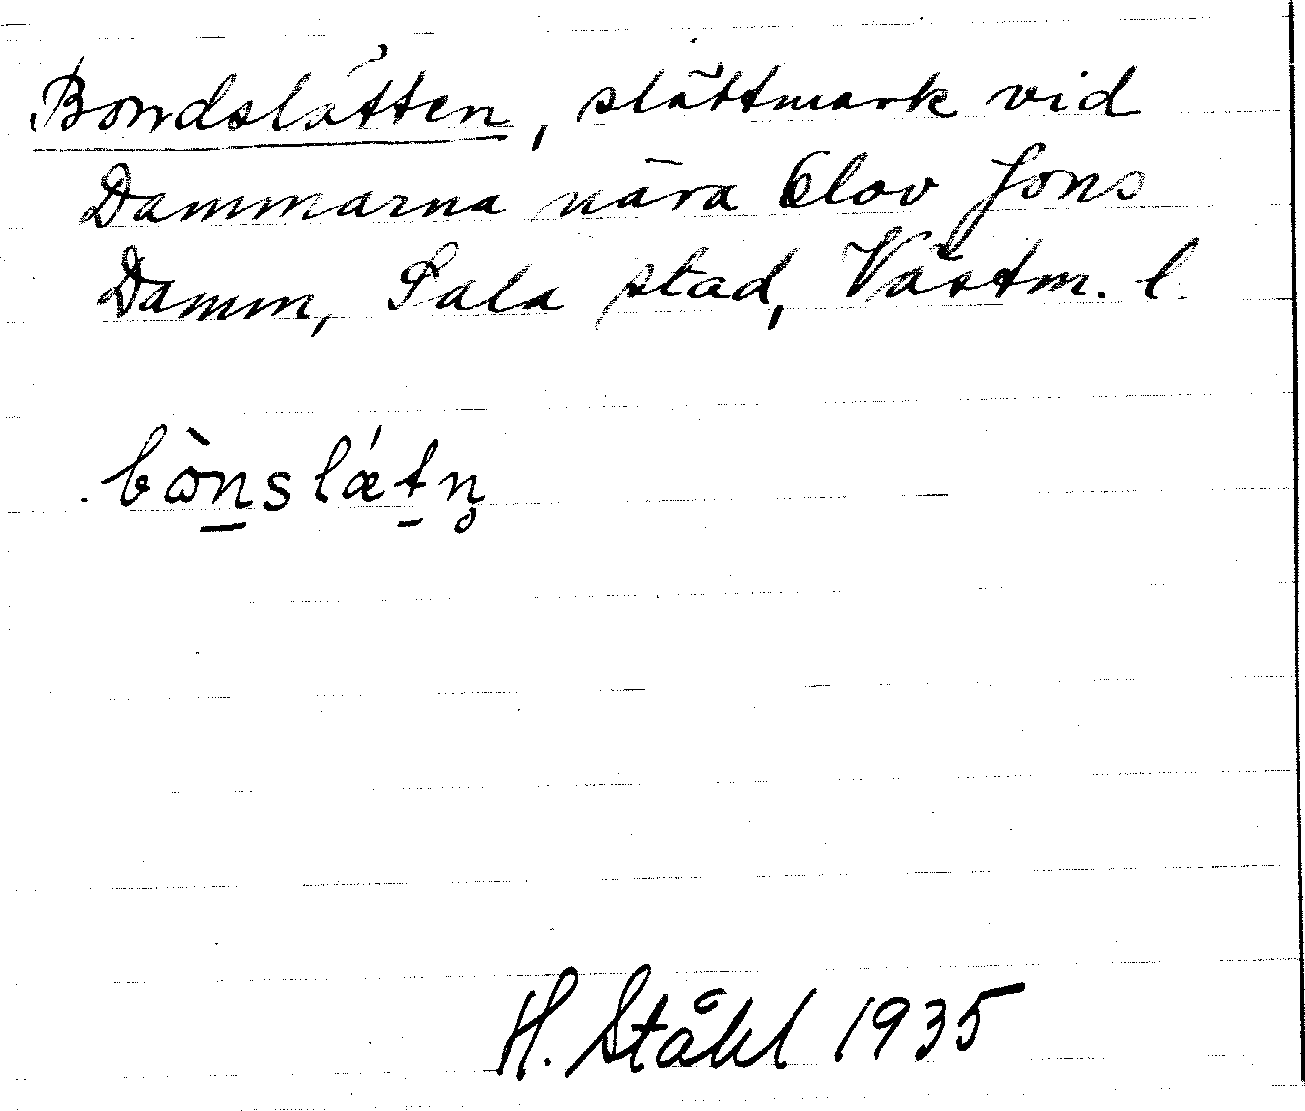 Bondslätten, slättmark vid
Dammarna nära Olov Jons
Damm, Sala stad, Västm. l.
bòn̲slǽt̲n̥
H. Ståhl 1935